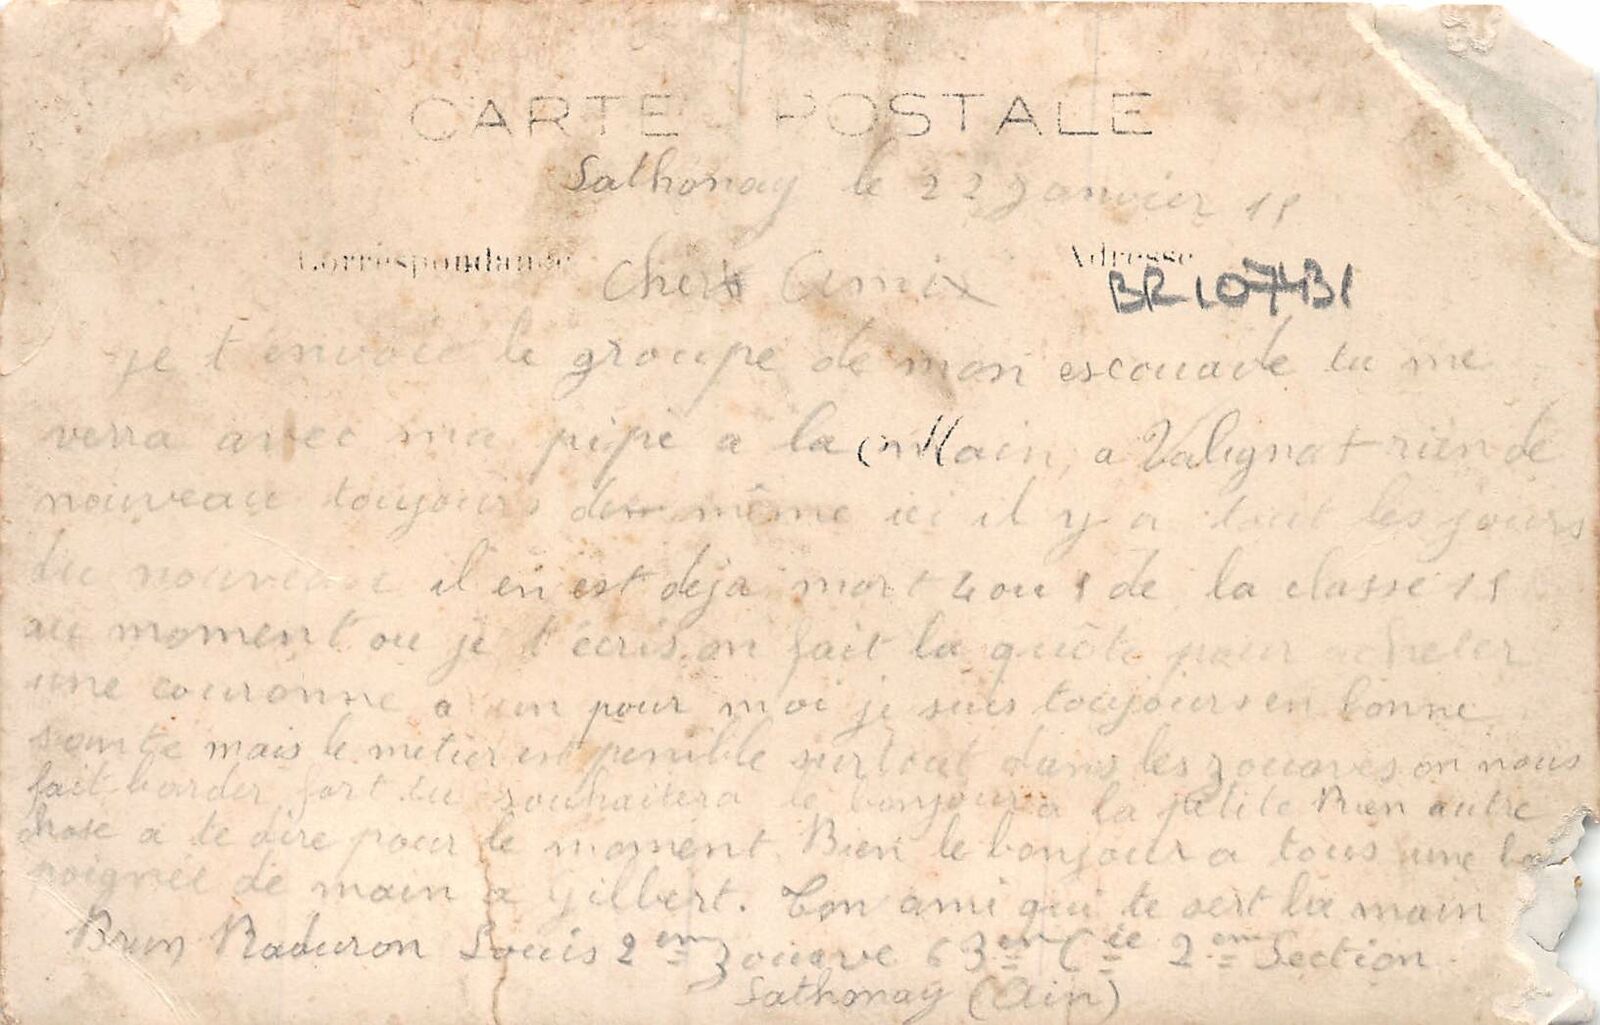 CARTE POSTALE
Sathonay le 22 Janvier 15
Correspondance
Adresse
Cher Ami
BR107431
je t'envoie le groupe de mon escouade tu me
verra avec ma pipe a la Main, a Valignat rien de
nouveau toujours de même ici il y a tout les jours
du nouveau il en est deja mort 4 ou 5 de la classe 15
au moment ou je t'écris on fait la quête pour acheter
une couronne a un pour moi je suis toujours en bonne
sante mais le metier est penible surtout dans les zouaves on nous
fait barder fort tu souhaitera le bonjour a la petite Rien autre
chose a te dire pour le moment. Bien le bonjour a tous une
poignée de main a Gilbert. Ton ami qui te sert la main
Brun Louis 2em Zouave 63em Cie 2em Section
Sathonay (Ain)